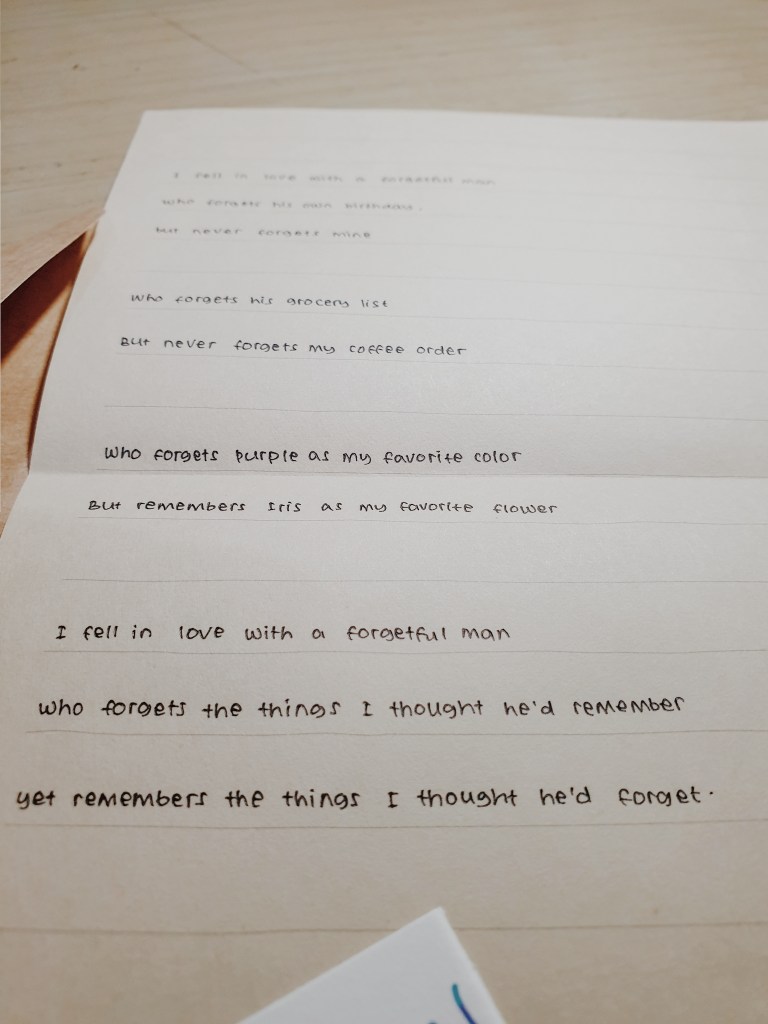 I fell in love with a forgetful man
who forgets his own birthday.
but never forgets mine
Who forgets his grocery list
But never forgets my coffee order
Who forgets purple as my favorite color
But remembers Iris as my favorite flower
I fell in love with a forgetful man
who forgets the things I thought he'd remember
yet remembers the things I thought he'd forget.